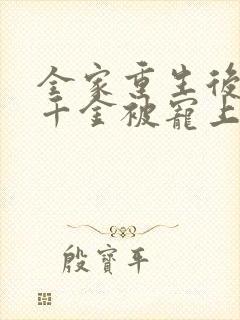 全家重生後
千金被寵上
殷寶平